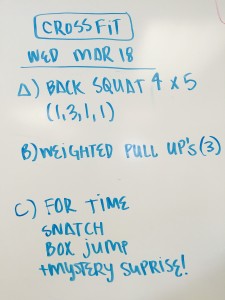 CROSSFIT
WED MAR 18
A) BACK SQUAT 4 x 5
(1,3,1,1)
B) WEIGHTED PULL UP'S (3)
C) FOR TIME
SNATCH
BOX JUMP
+MYSTERY SUPRISE!